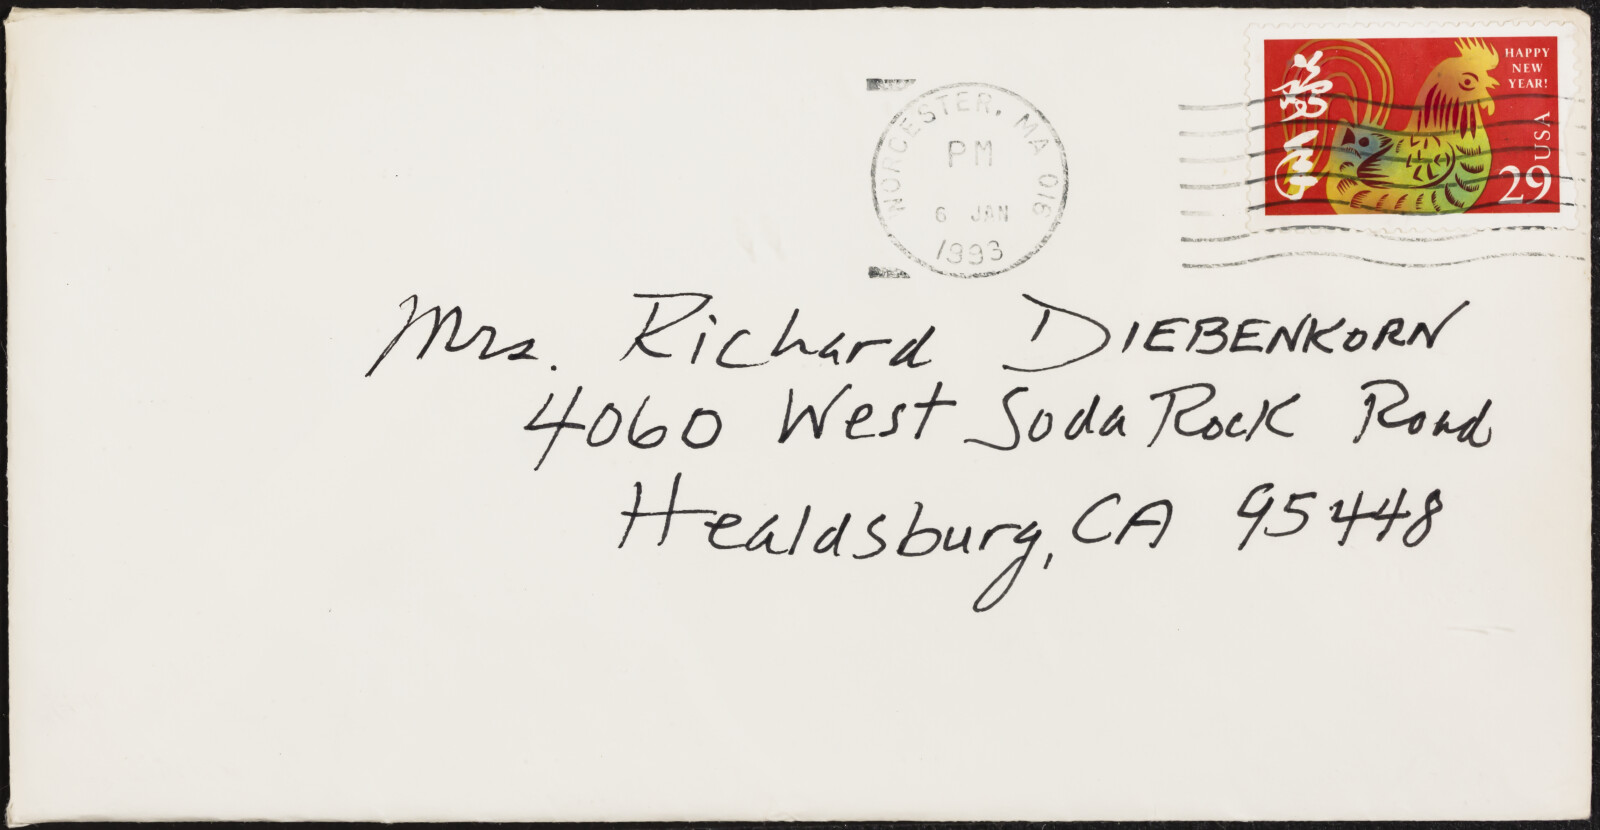 WORCESTER, MA 018
PM
6 JAN
1993
HAPPY
NEW
YEAR!
USA
29
Mrs. Richard DIEBENKORN
4060 West Soda Rock Road
Healdsburg, CA 95448